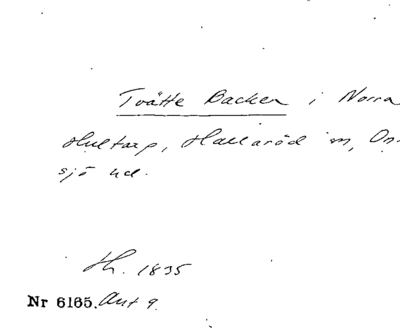 Tvätte Backen i Norra
Hultarp, Hallaröd sn, On
sjö hd.
Hh. 1835
Nr 6165. Ant 9.